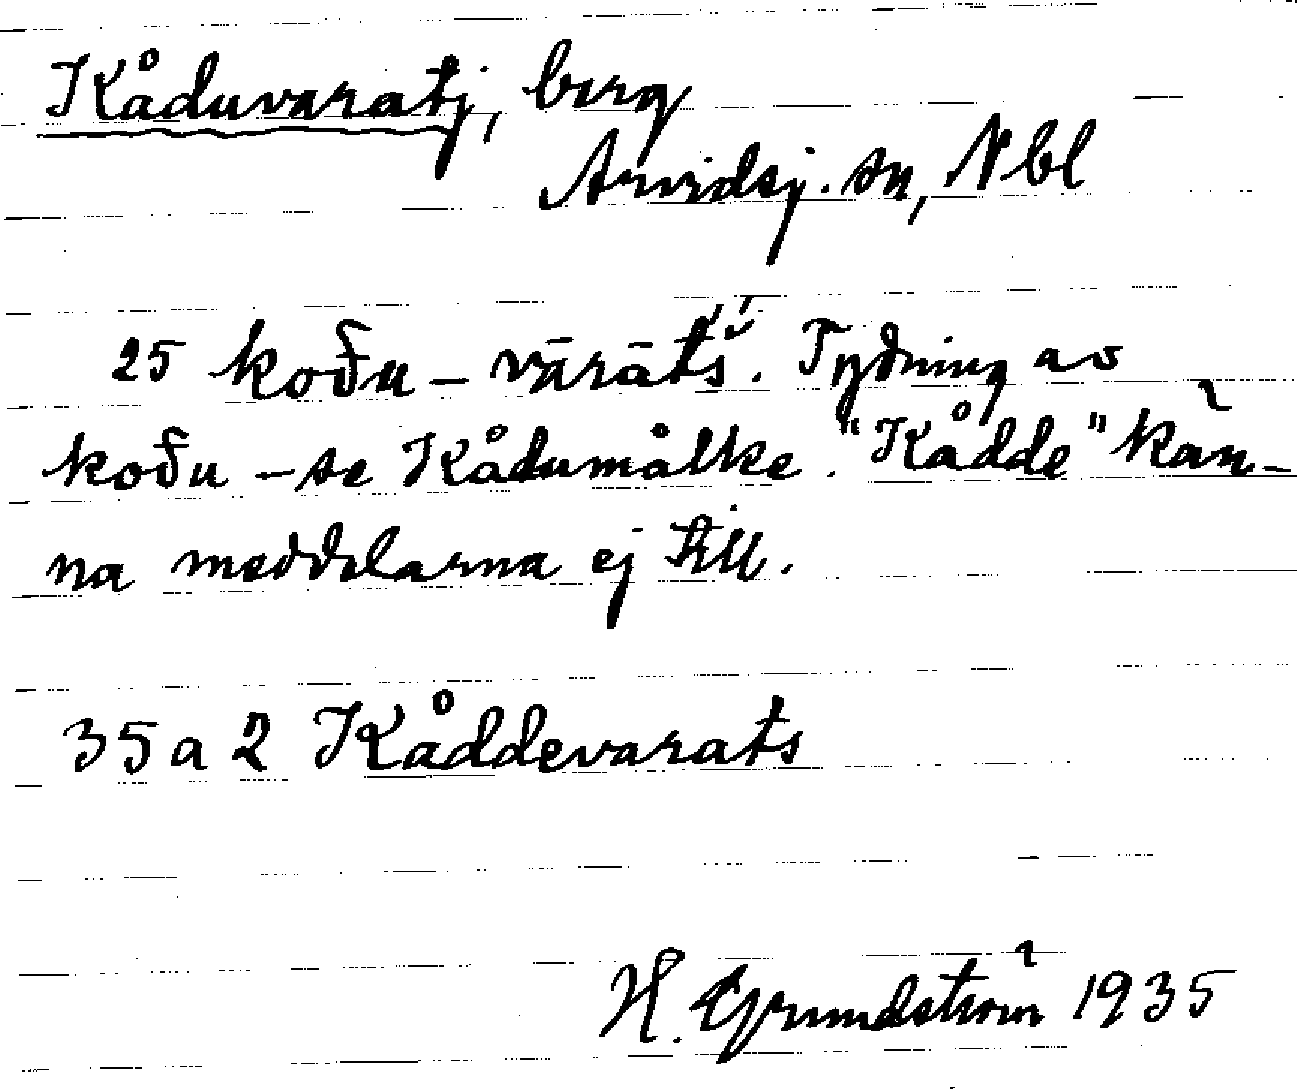 Kåduvaratj, berg
Arvidsj. sn, Nbl
25 koδu - vārāts̆́. Tydning av
koδu - se Kådumålke. "Kådde" kän-
na meddelarna ej till.
35 a 2 Kåddevarats
H. Grundström 1935